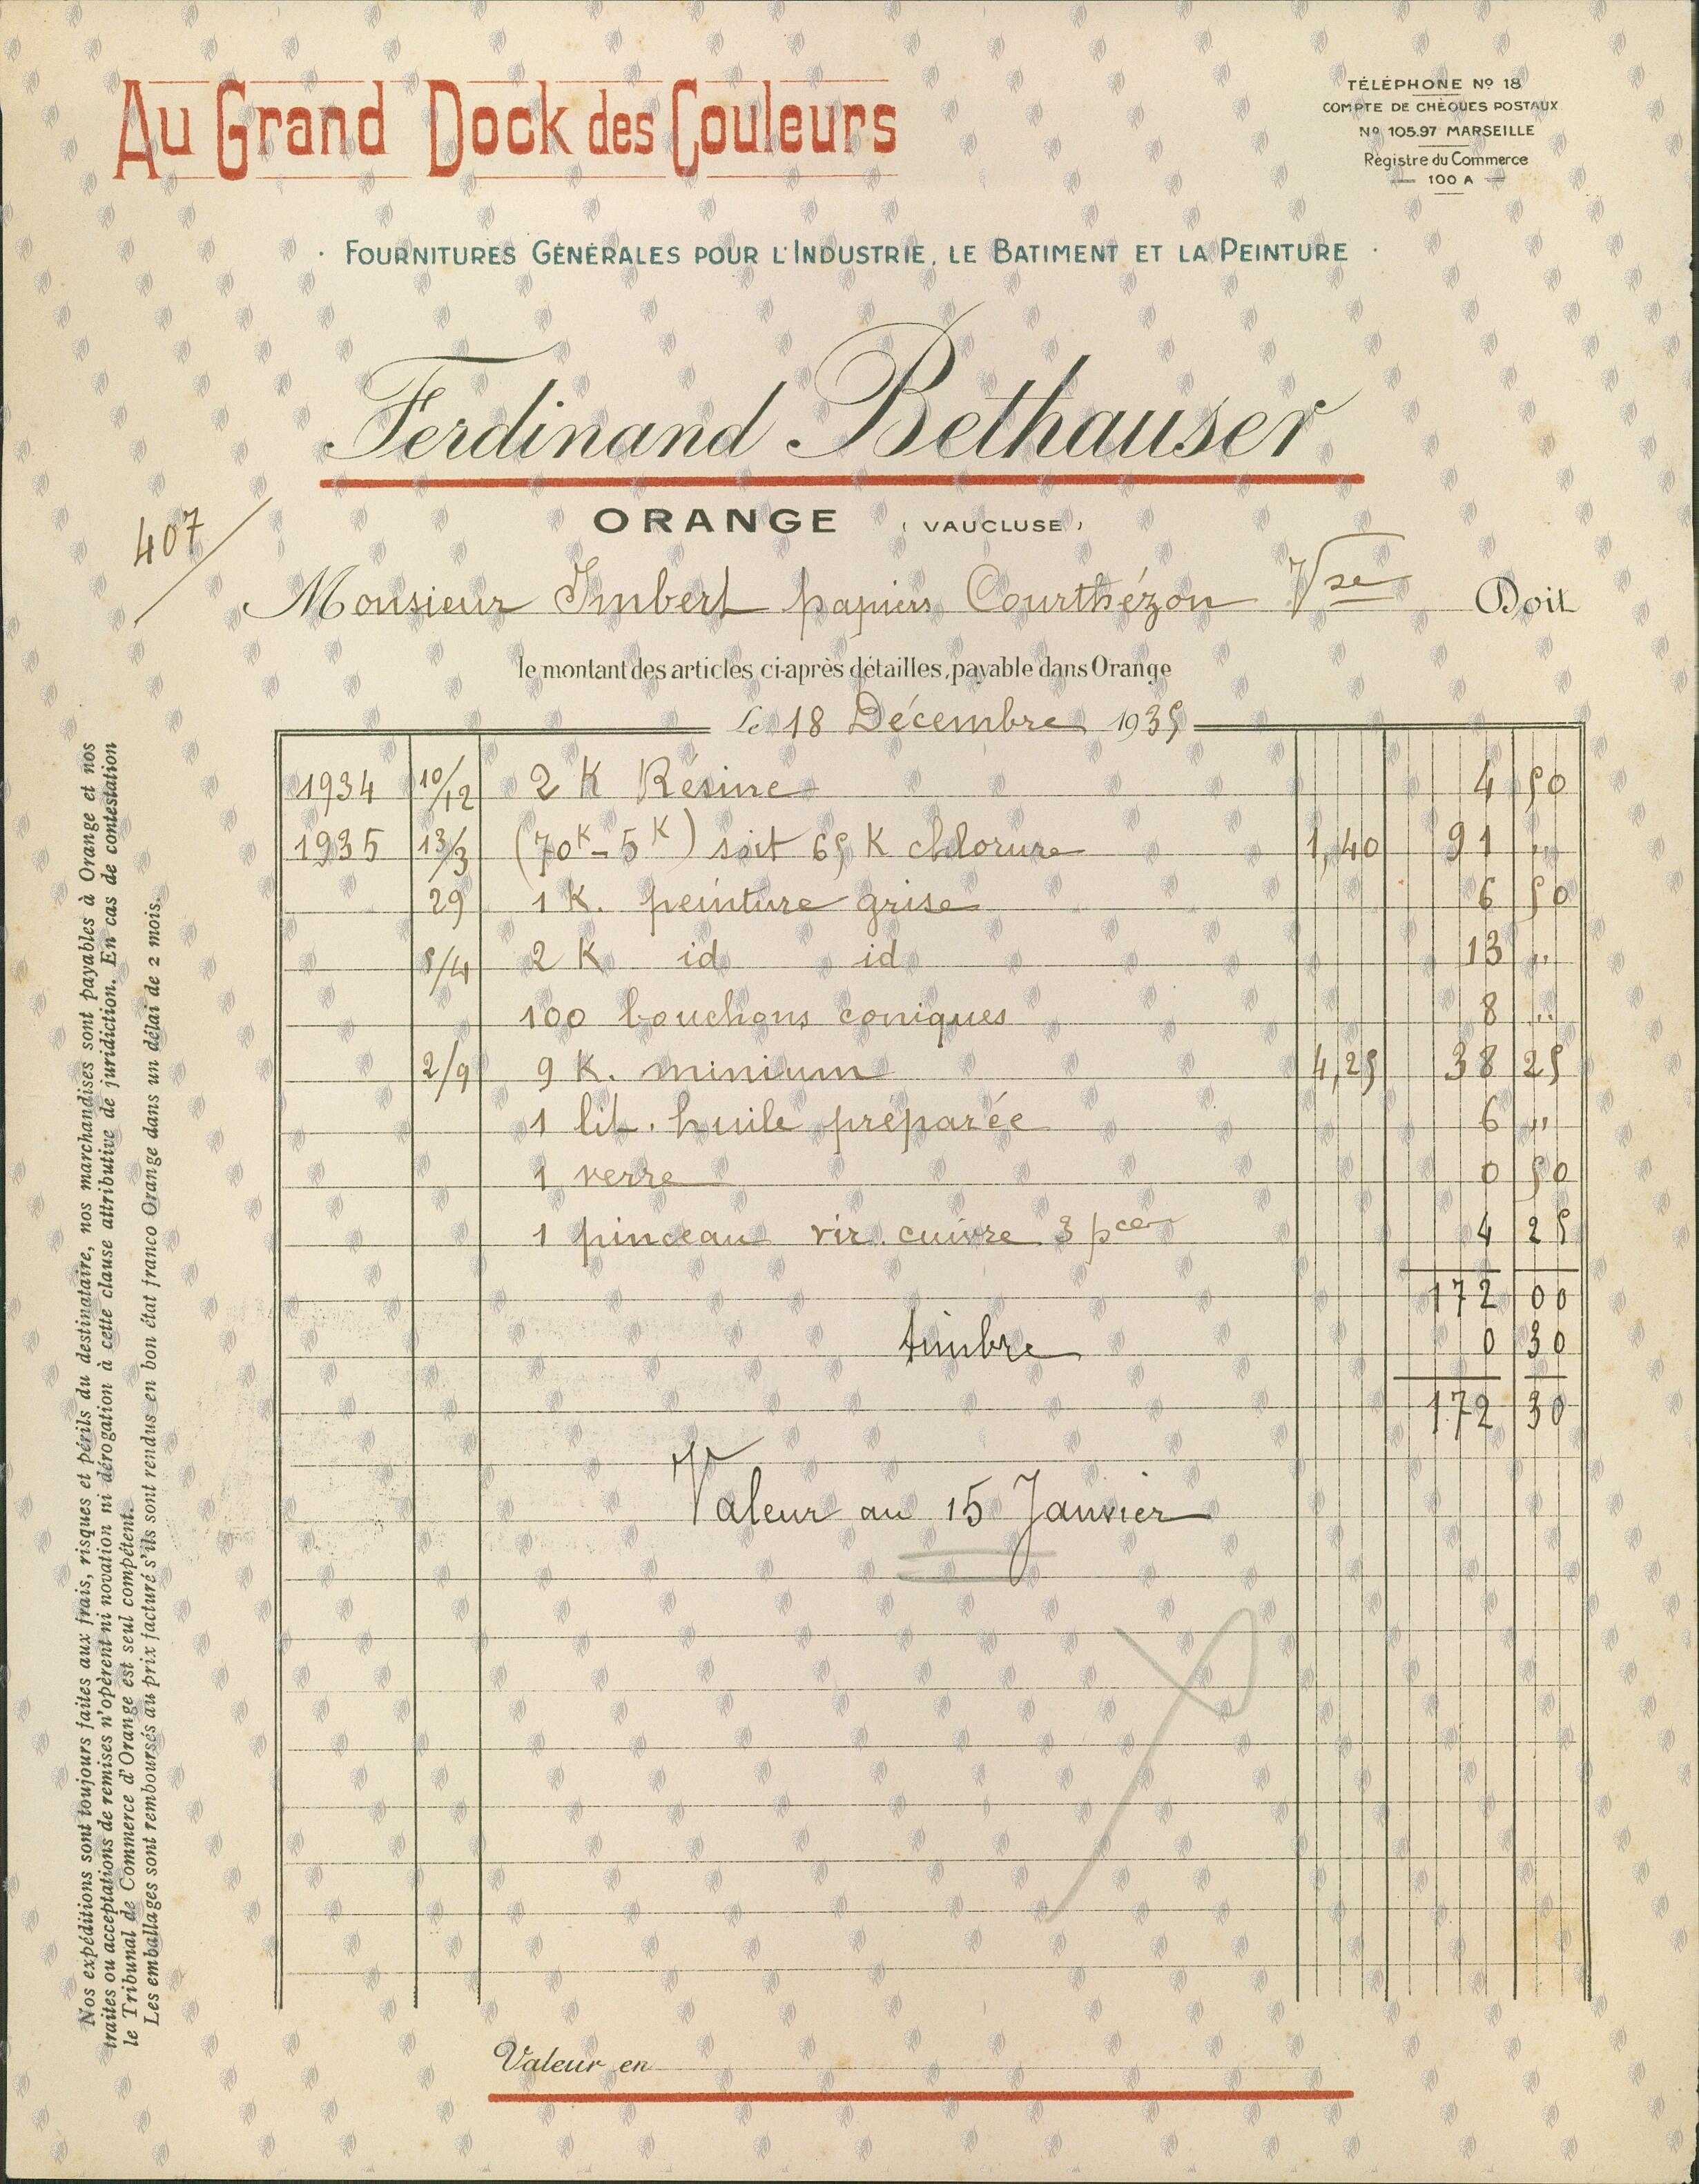 Au Grand Dock des Couleurs
TÉLÉPHONE Nº 18
COMPTE DE CHÈQUES POSTAUX
Nº 105.97 MARSEILLE
Règistre du Commerce
— 100 A —
· FOURNITURES GÉNÉRALES POUR L'INDUSTRIE, LE BATIMENT ET LA PEINTURE ·
Ferdinand Bethauser
ORANGE (VAUCLUSE)
407
Monsieur Imbert papiers Courthézon Vse Doit
le montant des articles ci-après détaillés, payable dans Orange
Le 18 Décembre 1935
1934 10/12 2 K Résine 4 50
1935 13/3 (70K - 5K) soit 65 K chlorure 1,40 91 "
29 1 K. peinture grise 6 50
5/4 2 K id id 13 "
100 bouchons coniques 8 "
2/9 9 K. minium 4,25 38 25
1 lit. huile préparée 6 "
1 verre 0 50
1 pinceau vir. cuivre 3 pces 4 25
172 00
timbre 0 30
172 30
Valeur au 15 Janvier
Valeur en
Nos expéditions sont toujours faites aux frais, risques et périls du destinataire, nos marchandises sont payables à Orange et nos
traites ou acceptations de remises n'opèrent ni novation ni dérogation à cette clause attributive de juridiction. En cas de contestation
le Tribunal de Commerce d'Orange est seul compétent.
Les emballages sont remboursés au prix facturé s'ils sont rendus en bon état franco Orange dans un délai de 2 mois.